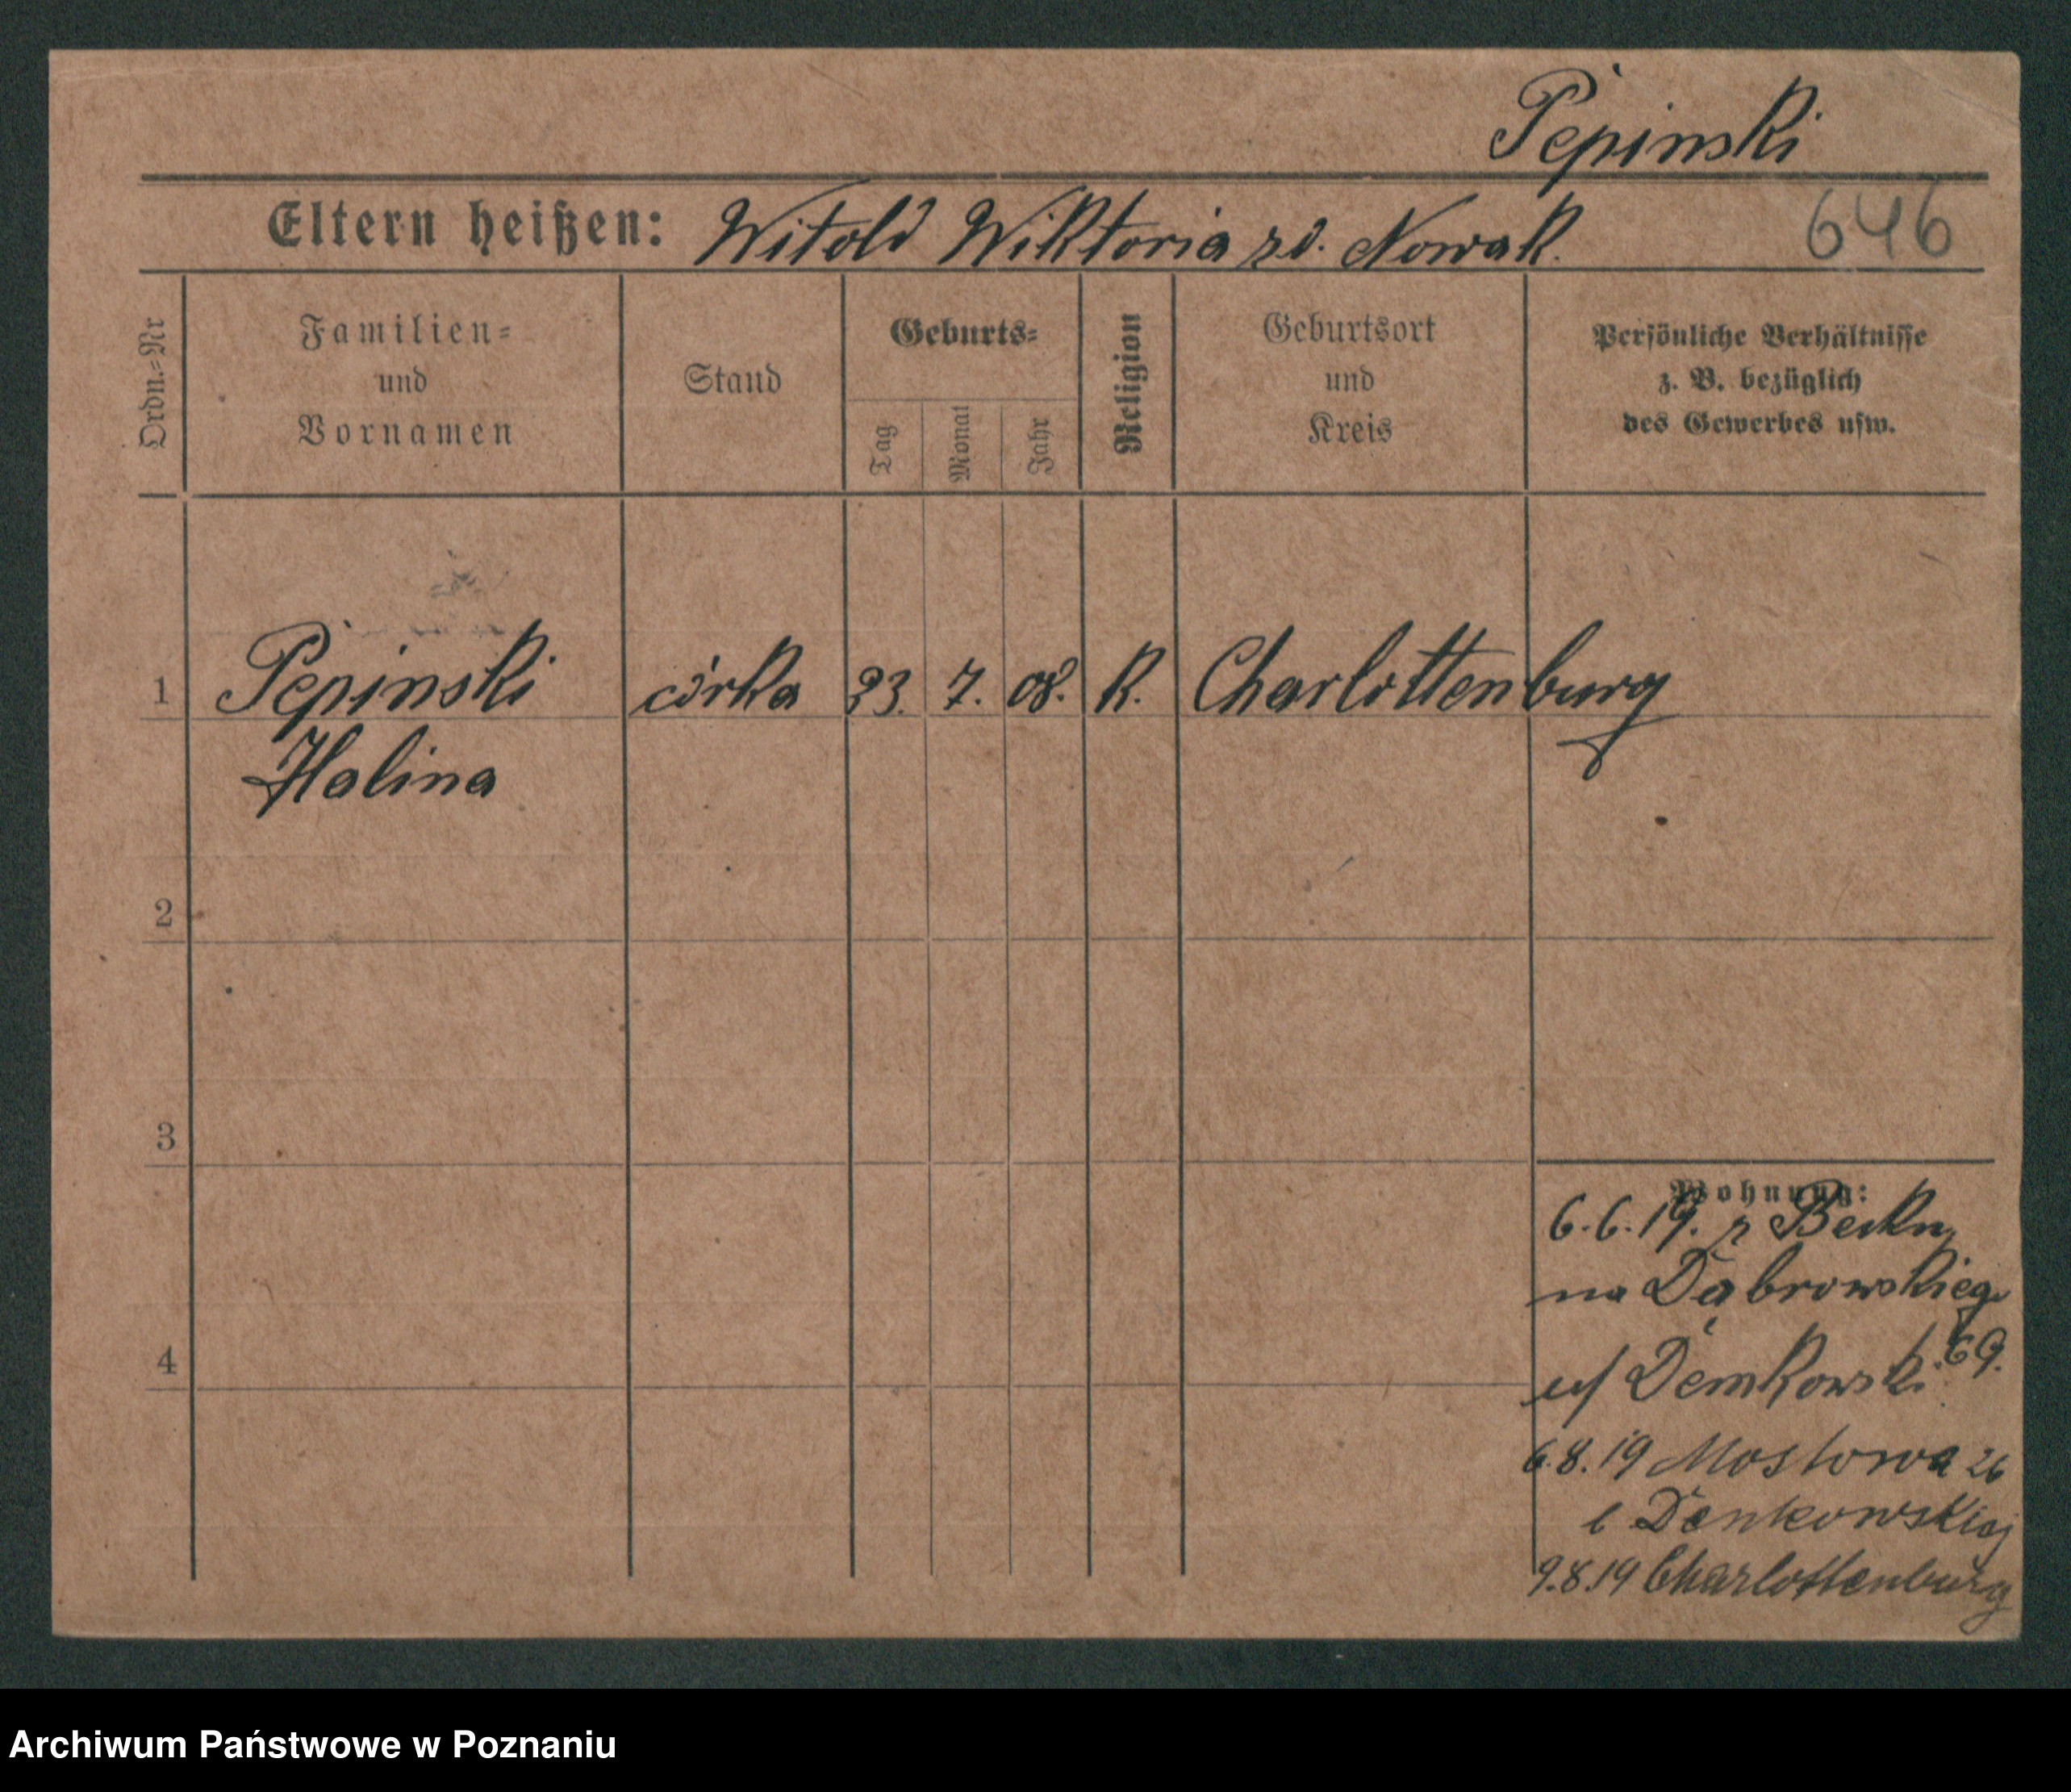 Pepinski
Eltern heißen: Witold Wiktoria zd. Nowak.
646
Ordn.=Nr
Familien=
und
Vornamen
Stand
Geburts=
Tag
Monat
Jahr
Religion
Geburtsort
und
Kreis
Persönliche Verhältnisse
z. B. bezüglich
des Gewerbes usw.
1 Pepinski córka 23. 7. 08. K. Charlottenburg
Halina
2
3
Wohnung:
6.6.19. z
na Dąbrowskiego
69.
4
Demkowski
6.8.19 Mostowa 26
Denkowskiej
9.8.19 Charlottenburg
Archiwum Państwowe w Poznaniu